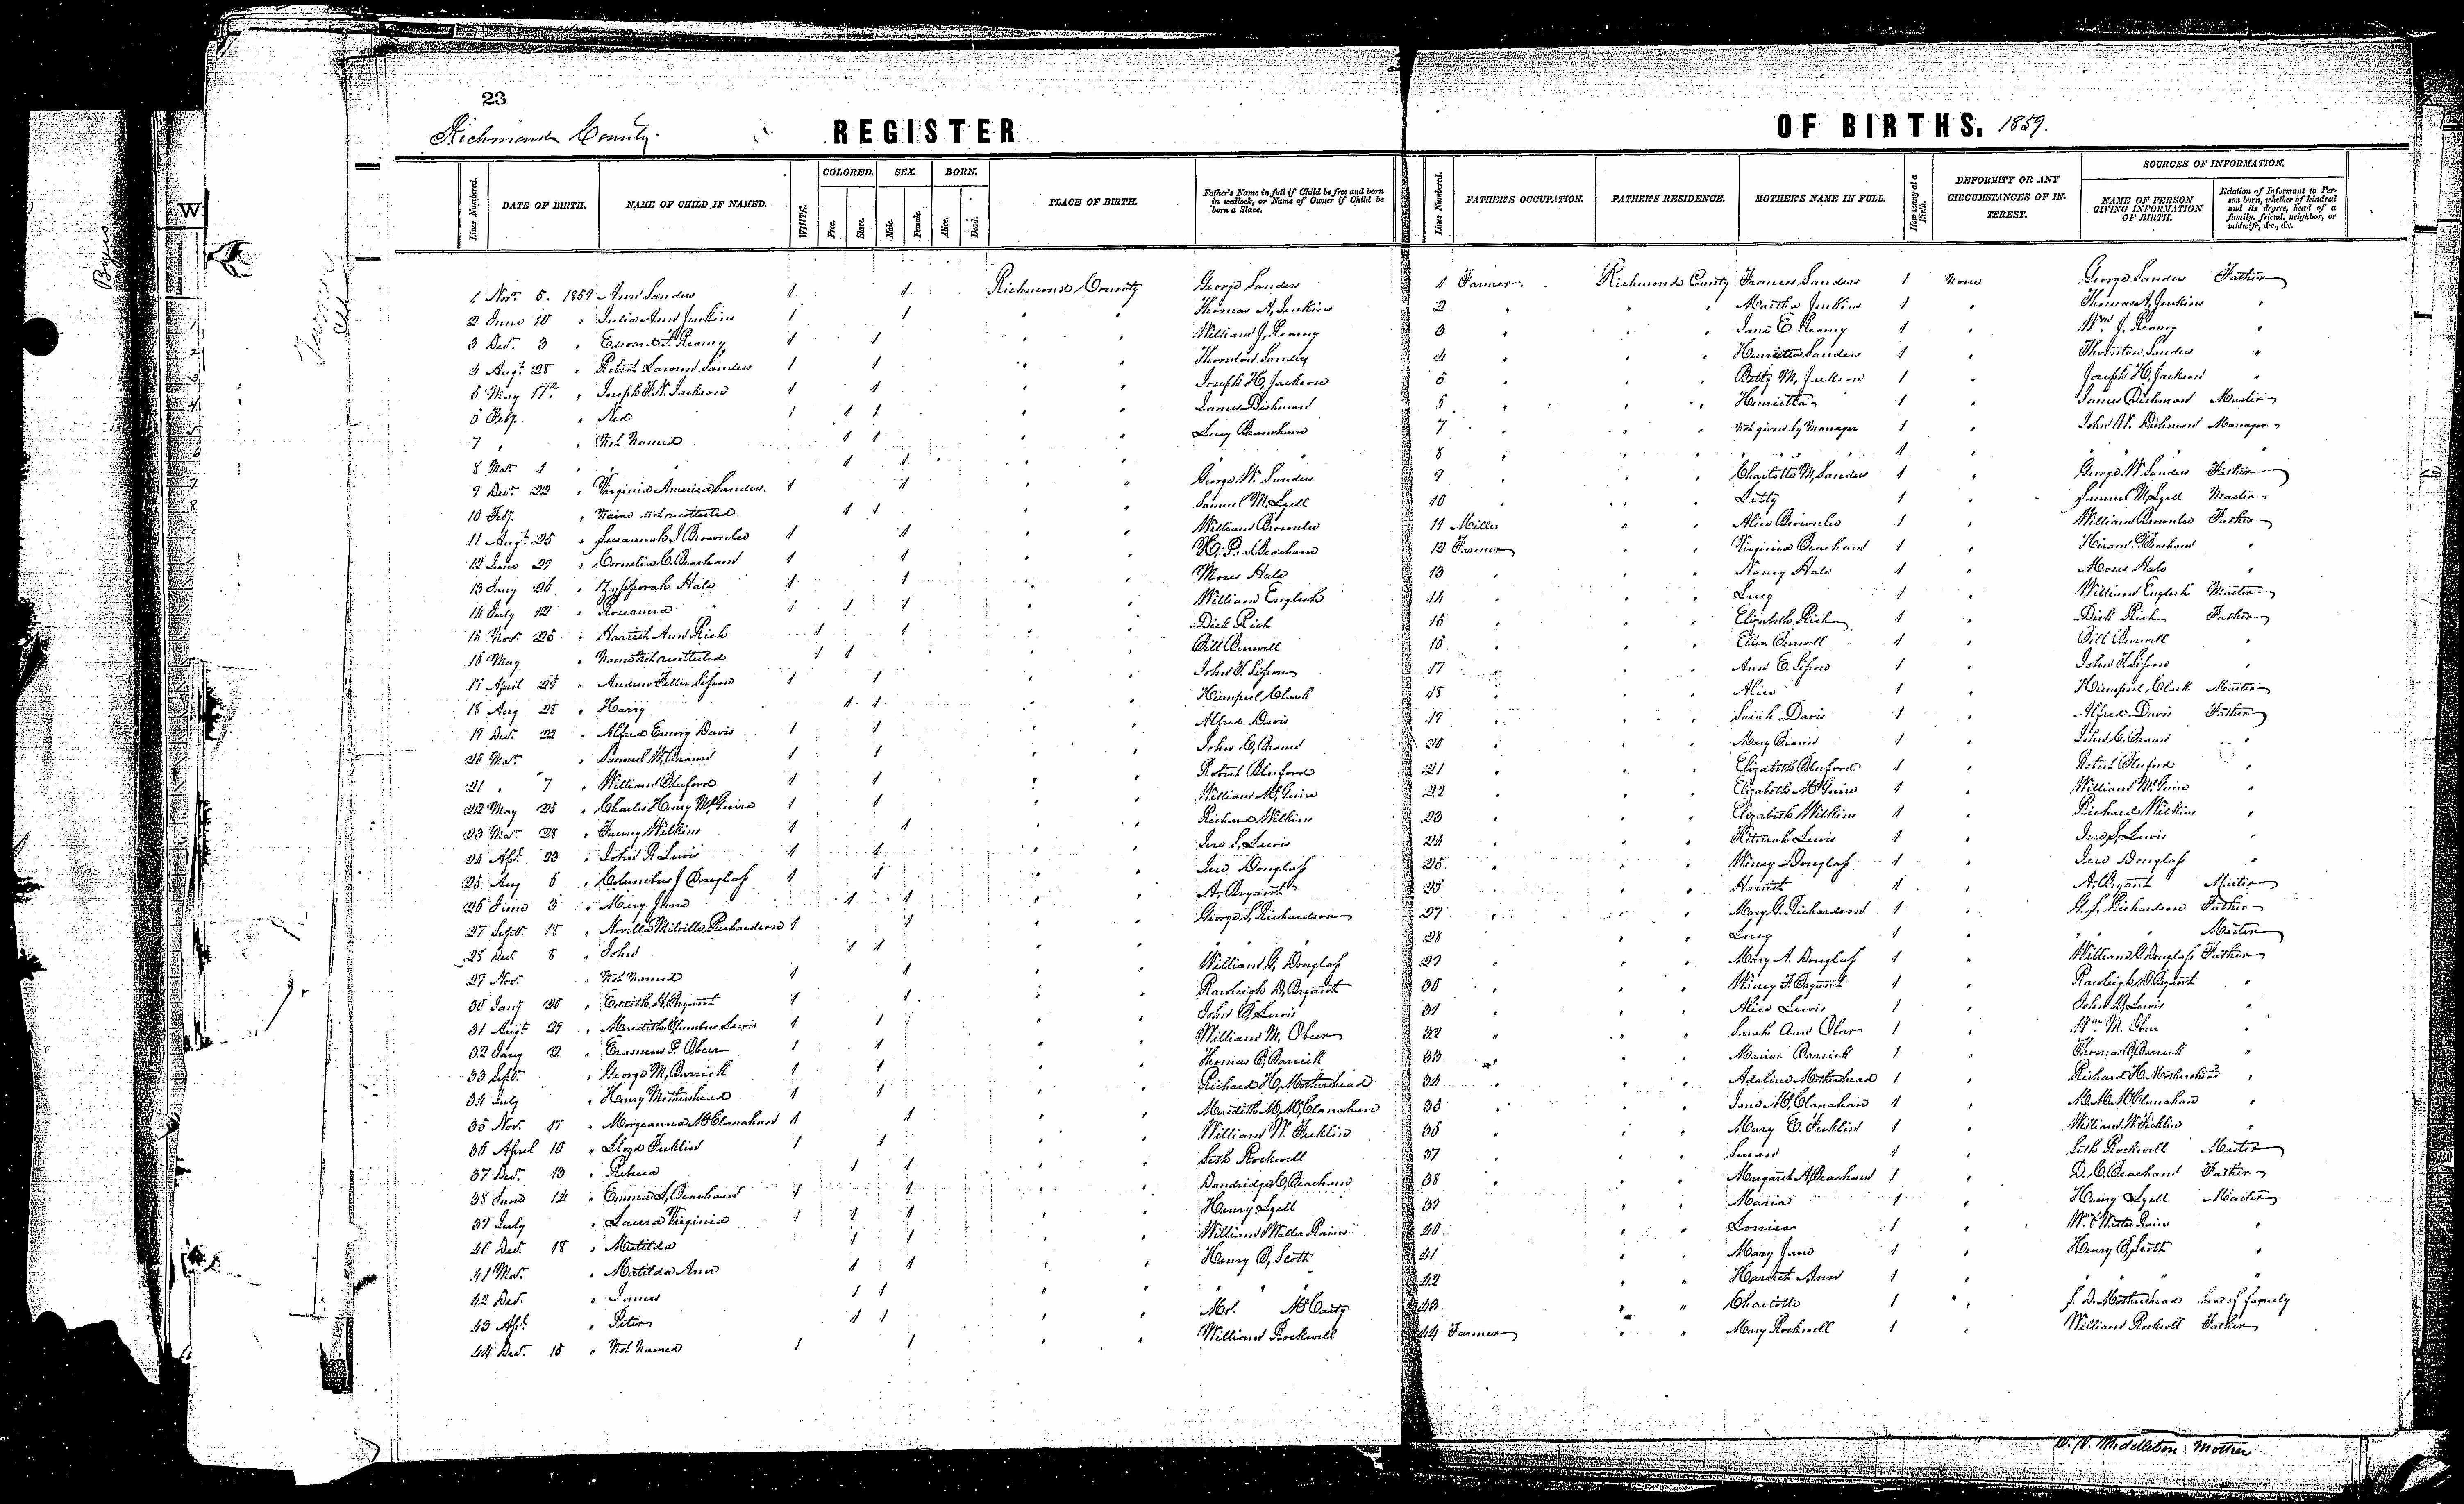 23
Richmond County
REGISTER
OF BIRTHS. 1859.
Lines Numbered.
DATE OF BIRTH.
NAME OF CHILD IF NAMED.
WHITE.
COLORED.
Free.
Slave.
SEX.
Male.
Female.
BORN.
Alive.
Dead.
PLACE OF BIRTH.
Father's Name in full if Child be free and born in wedlock, or Name of Owner if Child be born a Slave.
Lines Numbered.
FATHER'S OCCUPATION.
FATHER'S RESIDENCE.
MOTHER'S NAME IN FULL.
How many at a Birth.
DEFORMITY OR ANY CIRCUMSTANCES OF INTEREST.
SOURCES OF INFORMATION.
NAME OF PERSON GIVING INFORMATION OF BIRTH.
Relation of Informant to Person born, whether of kindred and its degree, head of a family, friend, neighbor, or midwife, &c., &c.
1 Nov. 5. 1859 Ann Sanders 1 1 Richmond County George Sanders 1 Farmer Richmond County Frances Sanders 1 None George Sanders Father
2 June 10 " Julia Ann Jenkins 1 1 " " Thomas A. Jenkins 2 " " " Martha Jenkins 1 " Thomas A. Jenkins "
3 Dec. 3 " Edward F. Reamy 1 1 " " William J. Reamy 3 " " " Jane E. Reamy 1 " Wm. J. Reamy "
4 Augt. 28 " Robert Lawson Sanders 1 1 " " Thornton Sanders 4 " " " Henrietta Sanders 1 " Thornton Sanders "
5 May 17th " Joseph F. N. Jackson 1 1 " " Joseph H. Jackson 5 " " " Betty M. Jackson 1 " Joseph H. Jackson "
6 Feby. " Ned 1 1 " " James Dishman 6 " " " Henrietta 1 " James Dishman Master
7 " " Not Named 1 1 " " Lucy Branham 7 " " " Not given by Manager 1 " John W. Dishman Manager
8 Mar 1 " " 1 1 " " " " 8 " " " " " " 1 " " " "
9 Dec. 22 " Virginia America Sanders 1 1 " " George W. Sanders 9 " " " Charlotte M. Sanders 1 " George W. Sanders Father
10 Feby. " Name not recollected 1 1 " " Samuel M. Lyell 10 " " " Letty 1 " Samuel M. Lyell Master
11 Augt. 25 " Susannah J. Brownlee 1 1 " " William Brownlee 11 Miller " " Alice Brownlee 1 " William Brownlee Father
12 June 29 " Cornelia C. Beacham 1 1 " " H. P. Beacham 12 Farmer " " Virginia Beacham 1 " Hiram P. Beacham "
13 Jany 26 " Zypporah Hale 1 1 " " Moses Hale 13 " " " Nancy Hale 1 " Moses Hale "
14 July 12 " Roseanna 1 1 " " William English 14 " " " Lucy 1 " William English Master
15 Nov. 25 " Harriet Ann Rich 1 1 " " Dick Rich 15 " " " Elizabeth Rich 1 " Dick Rich Father
16 May " Name Not recollected 1 1 " " Bill Burwell 16 " " " Ellen Burwell 1 " Bill Burwell "
17 April 24 " Andrew Fetter Sisson 1 1 " " John H. Sisson 17 " " " Ann E. Sisson 1 " John H. Sisson "
18 Aug 28 " Harry 1 1 " " Clark 18 " " " Alice 1 " Clark Master
19 Dec. 22 " Alfred Emory Davis 1 1 " " Alfred Davis 19 " " " Sarah Davis 1 " Alfred Davis Father
20 Mar. " Samuel W. Brann 1 1 " " John C. Brann 20 " " " Mary Brann 1 " John C. Brann "
21 " 7 " William Bluford 1 1 " " Robert Bluford 21 " " " Elizabeth Bluford 1 " Robert Bluford "
22 May 25 " Charles Henry McGuire 1 1 " " William McGuire 22 " " " Elizabeth McGuire 1 " William McGuire "
23 Mar. 28 " Fanny Wilkins 1 1 " " Richard Wilkins 23 " " " Elizabeth Wilkins 1 " Richard Wilkins "
24 Apl. 23 " John R. Lewis 1 1 " " Jere S. Lewis 24 " " " Keturah Lewis 1 " Jere S. Lewis "
25 Aug 6 " Columbus J Douglass 1 1 " " Jere Douglass 25 " " " Winey Douglass 1 " Jere Douglass "
26 June 3 " Mary Jane 1 1 " " A. Bryant 26 " " " Harriet 1 " A. Bryant Master
27 Sept. 18 " Novilla Milville Richardson 1 1 " " George S. Richardson 27 " " " Mary G. Richardson 1 " G. S. Richardson Father
28 Dec. 8 " John 1 1 " " " " 28 " " Lucy 1 " " " Master
29 Nov. " Not Named 1 1 " " William G. Douglass 29 " " Mary A. Douglass 1 " William G. Douglass Father
30 Jany 20 " Edith A. Bryant 1 1 " " Rawleigh D. Bryant 30 " " " Winey F. Bryant 1 " Rawleigh D. Bryant "
31 Augt 29 " Meredith Columbus Lewis 1 1 " " John B. Lewis 31 " " " Alice Lewis 1 " John B. Lewis "
32 Jany 2 " Erasmus P. Ober 1 1 " " William M. Ober 32 " " " Sarah Ann Ober 1 " Wm. M. Ober "
33 Sept. " George M. Barrick 1 1 " " Thomas B. Barrick 33 " " " Maria Barrick 1 " Thomas B. Barrick "
34 July " Henry Mothershead 1 1 " " Richard H. Mothershead 34 " " " Adaline Mothershead 1 " Richard H. Mothershead "
35 Nov. 17 " Morgianna McClanahan 1 1 " " Meredith M. McClanahan 35 " " " Jane McClanahan 1 " M. M. McClanahan "
36 April 10 " Lloyd Ficklin 1 1 " " William W. Ficklin 36 " " " Mary E. Ficklin 1 " William W. Ficklin "
37 Dec. 13 " 1 1 " " Seth Rockwell 37 " " " Susan 1 " Seth Rockwell Master
38 June 12 " Emma S. Beacham 1 1 " " Dandridge C. Beacham 38 " " " Margaret A. Beacham 1 " D. C. Beacham Father
39 July " Laura Virginia 1 1 " " Henry Lyell 39 " " Maria 1 " Henry Lyell Master
40 Dec. 18 " Matilda 1 1 " " William Waller Rains 40 " " Louisa 1 " Wm. Waller Rains "
41 Mar. " Matilda Ann 1 1 " " Henry B. Scott 41 " " Mary Jane 1 " Henry B. Scott "
42 Dec. " James 1 1 " " " " " 42 " " Harriet Ann 1 " " " " "
43 Apl. " Peter 1 1 " " Mr. McCarty 43 " " Charlotte 1 " S. D. Mothershead head of family
44 Dec. 15 " Not Named 1 1 " " William Rockwell 44 Farmer " " Mary Rockwell 1 " William Rockwell Father
Middleton Mother